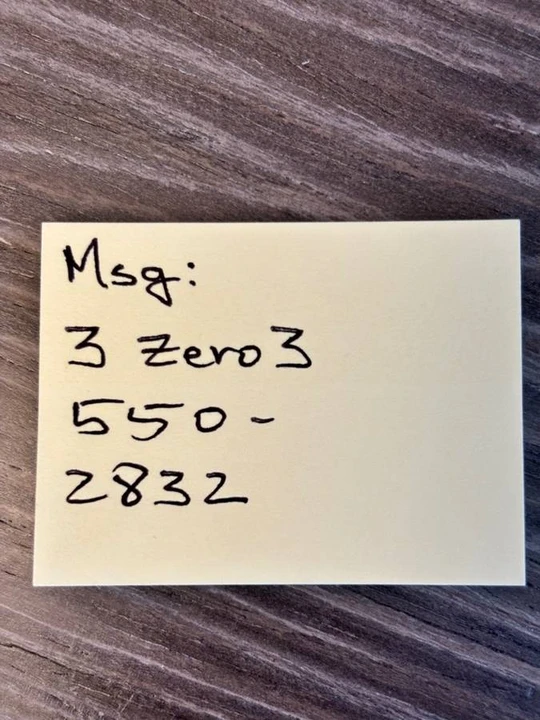 Msg:
3 Zero 3
550-
2832